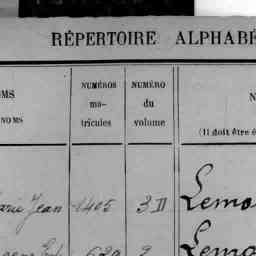 RÉPERTOIRE ALPHABÉ
OMS
NOMS
NUMÉROS
ma-
tricules
NUMÉRO
du
volume
N
(Il doit être é
arie Jean 1405 3 II Lemo
620 2 Lemo